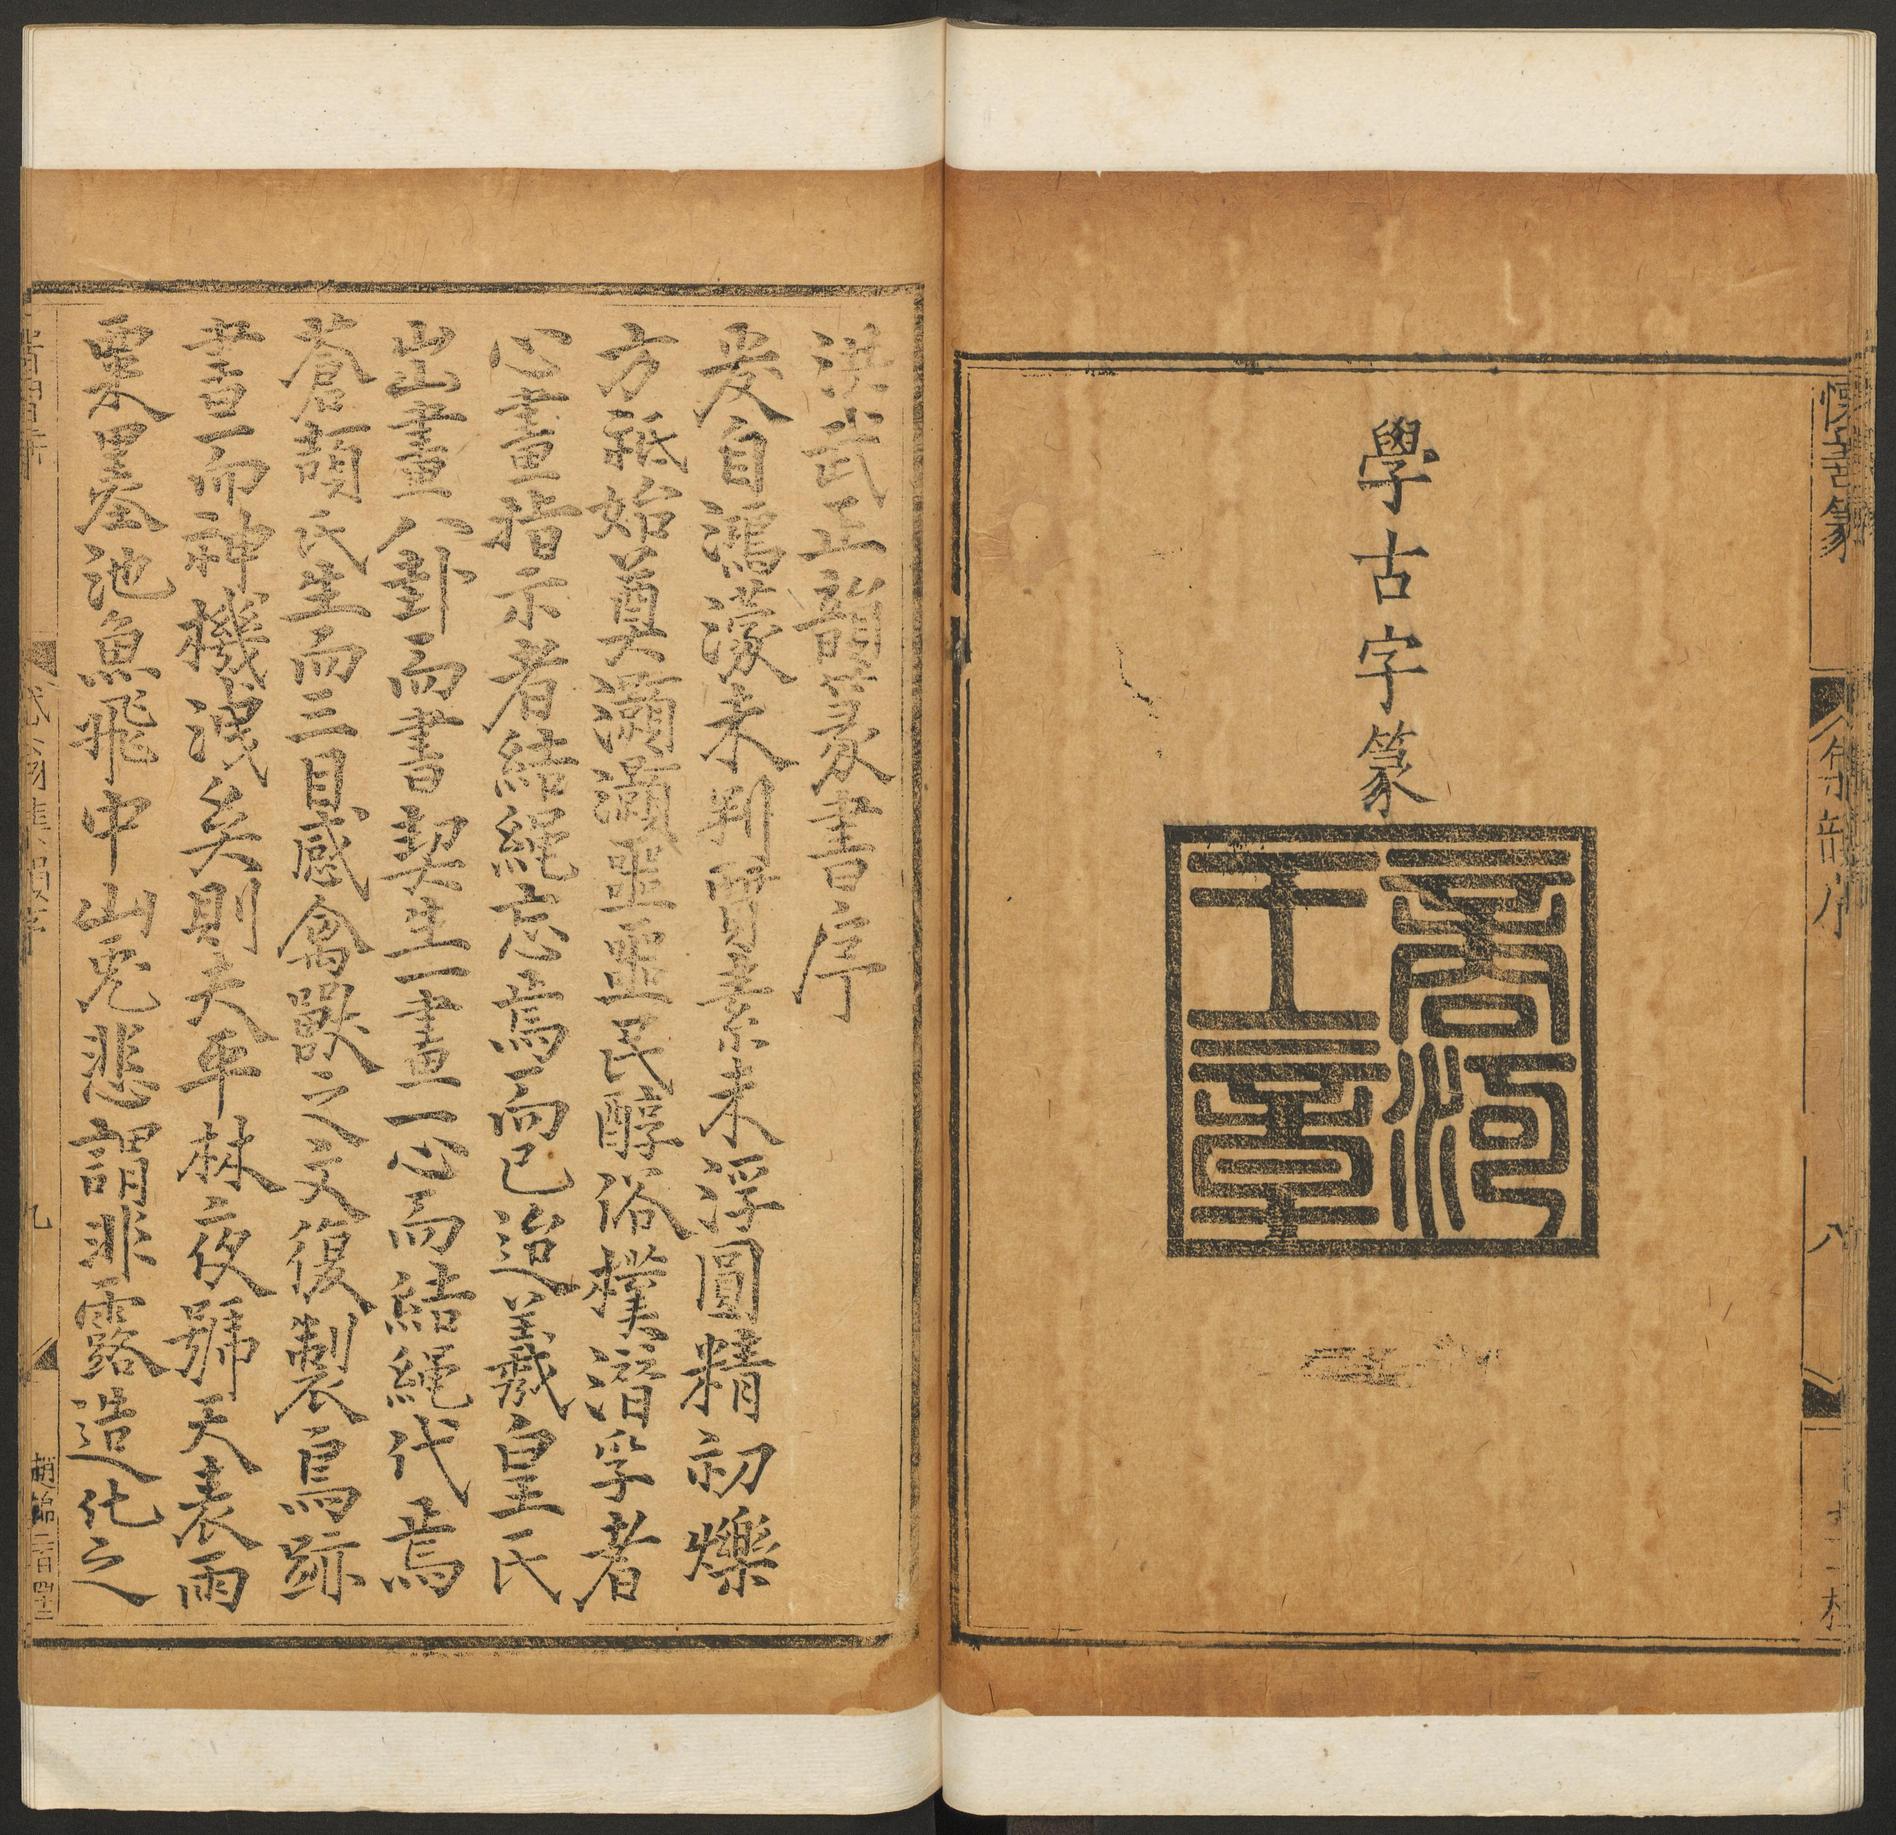 學古字篆
商河王章
八
洪武正韻篆書序
爰自鴻濛未判質素未浮圓精初爍
方祗始奠灝灝噩噩民醇俗樸潛孚者
心畫指示者結繩忘焉而已迨羲皇氏
出畫八卦而書契生一畫一心而結繩代焉
蒼頡氏生而三目感禽獸之文復制鳥跡
書而神機洩矣則夫平林夜號天表雨
粟墨池魚飛中山兎悲謂非露造化之
九